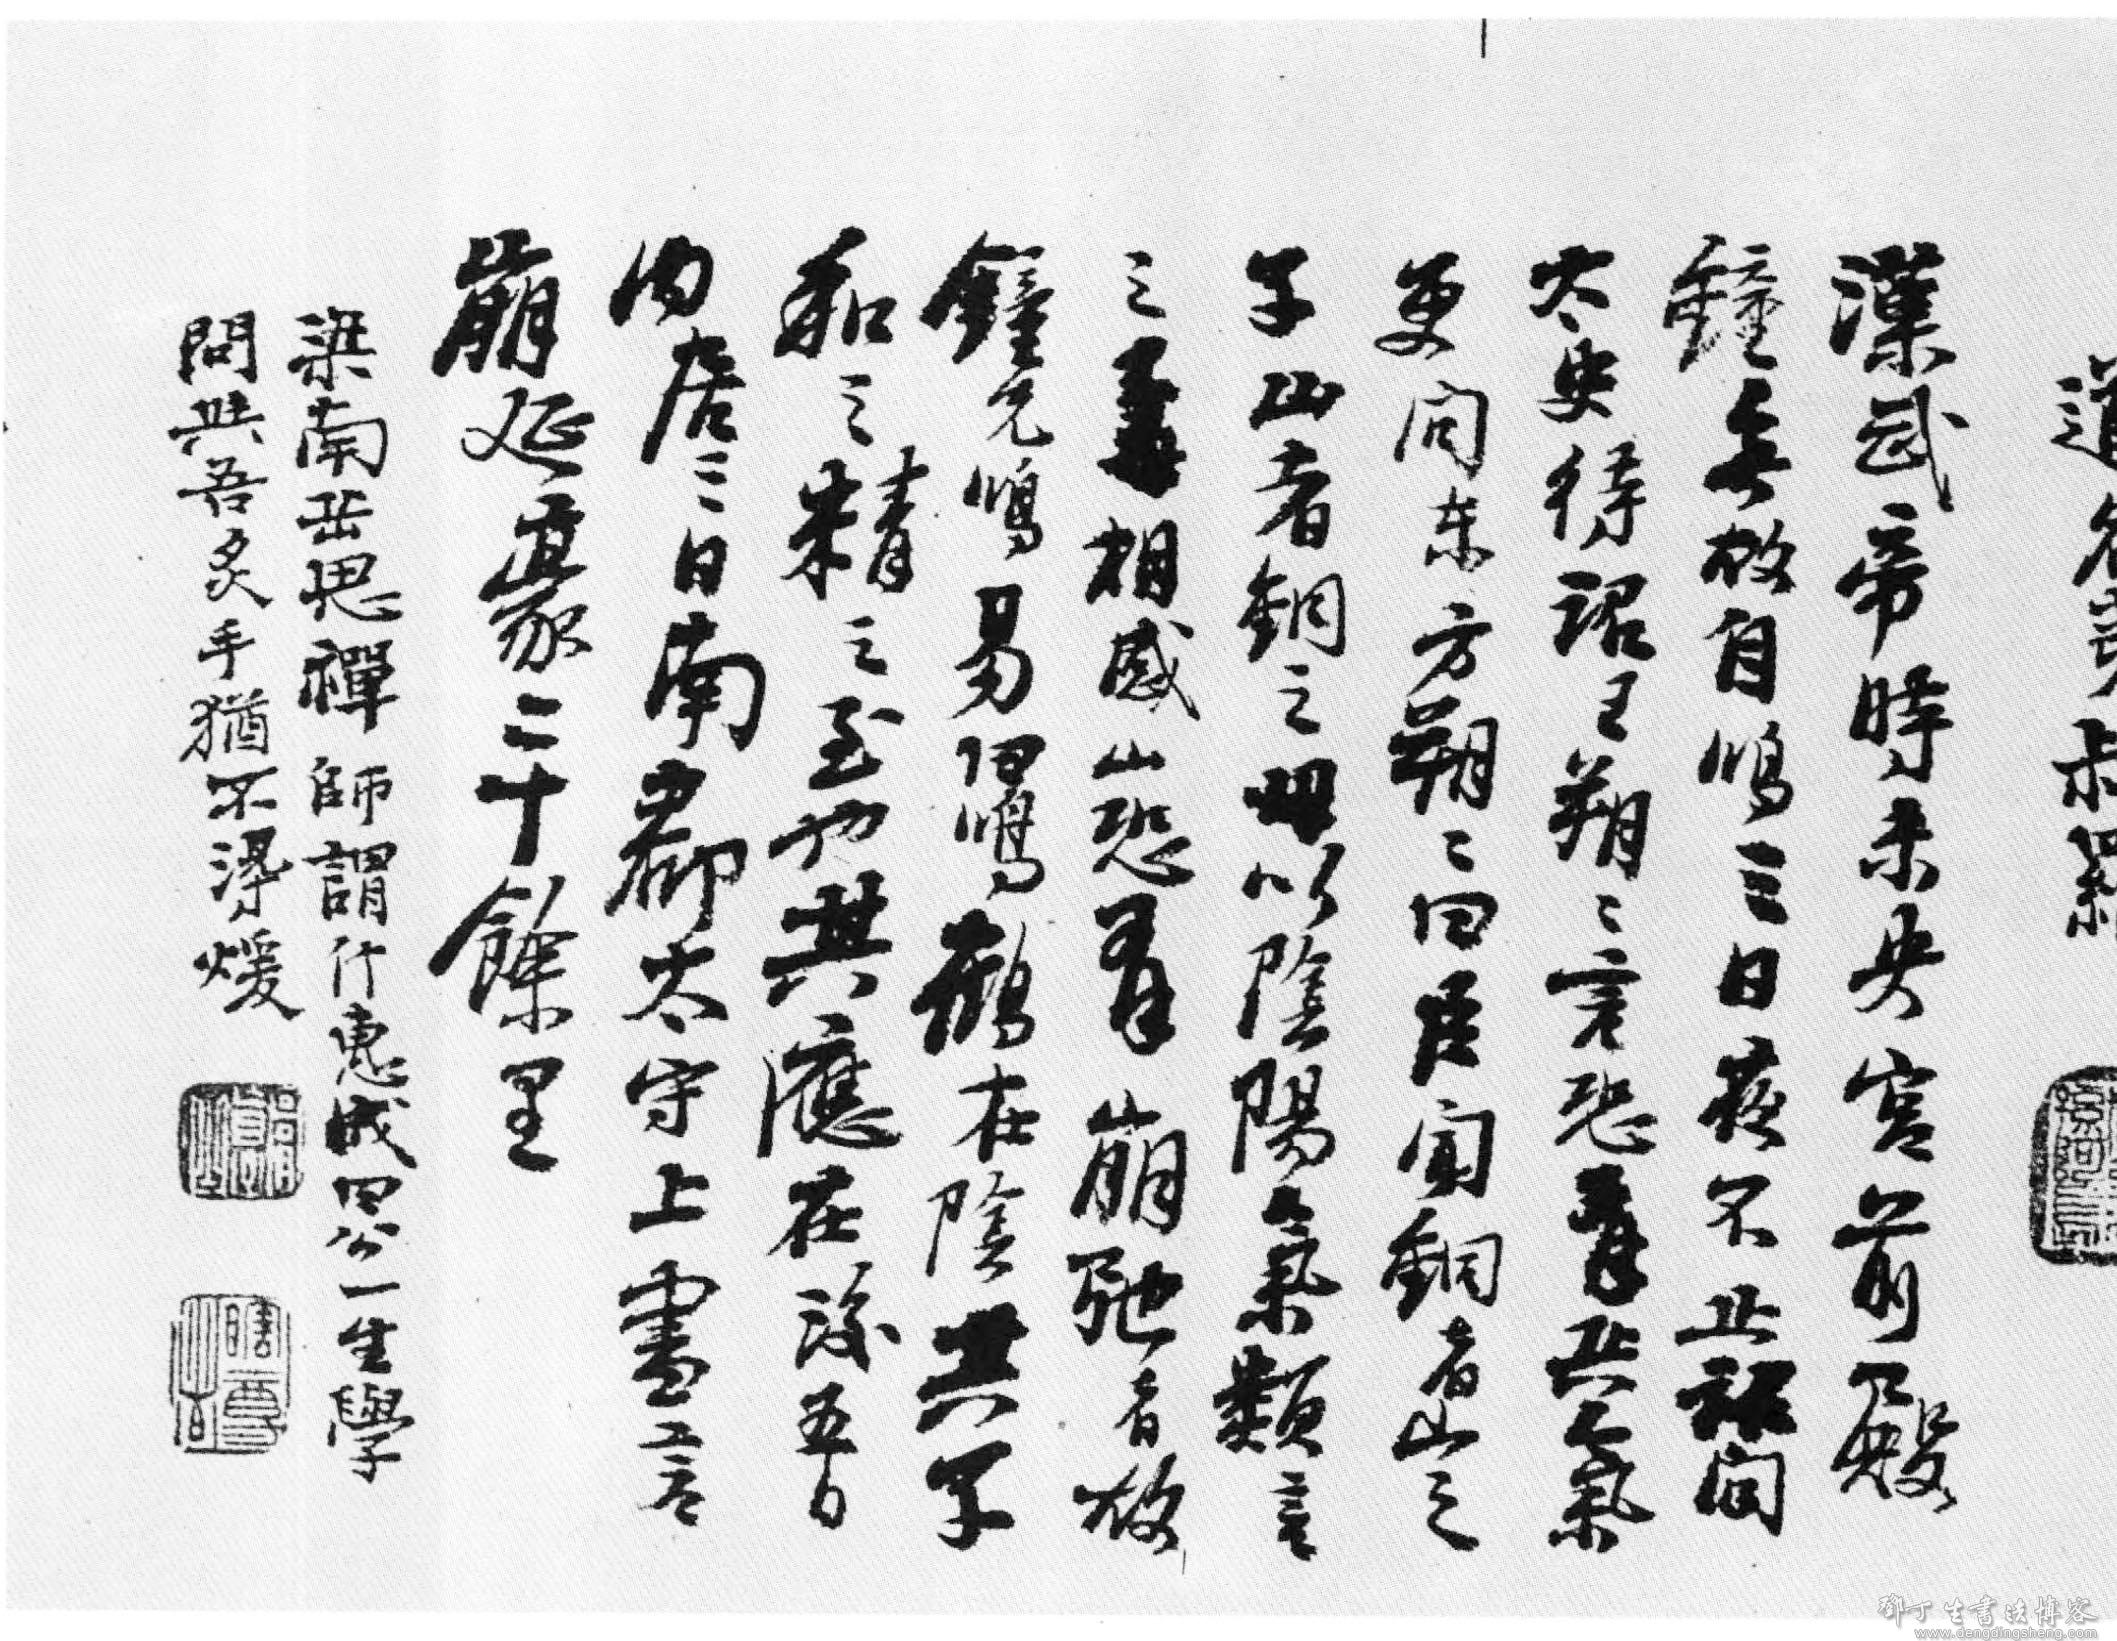 道
漢武帝時未央宮前殿
鐘無故自鳴三日夜不止詔問
太史待詔王朔〻言恐有兵氣
更問東方朔〻曰臣聞銅者山之
子山者銅之母以陰陽氣類言
之子母相感山恐有崩弛者故
鐘先鳴易曰鳴鶴在陰其子
和之精之至也其應在後五日
內居三日南郡太守上書言
崩延袤二十餘里
梁南岳思禪師謂行惠成曰公一生學
問與吾炙手猶不得煖
鄧丁生書法博客
www.dengdingsheng.com